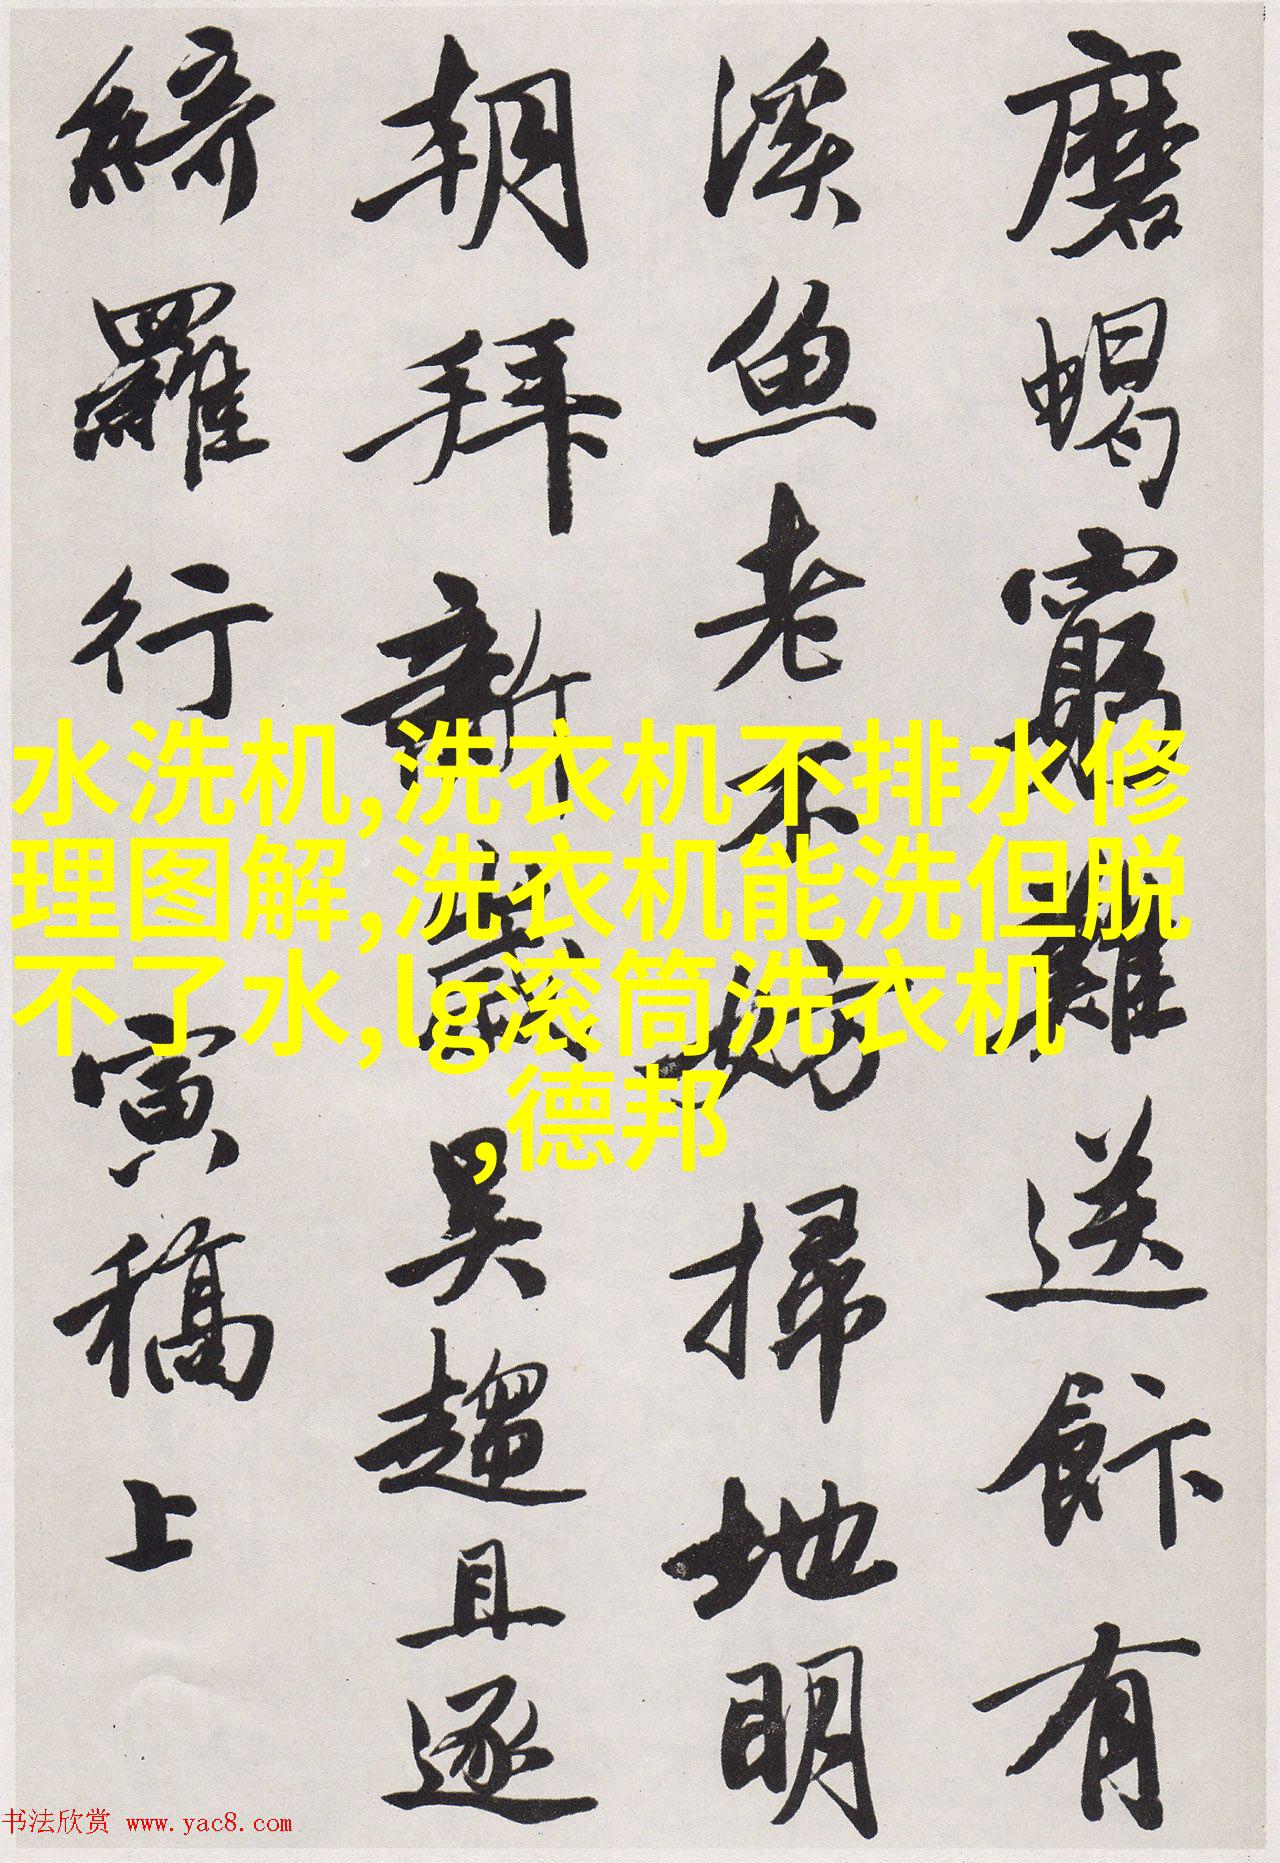 磨蝎窮難送飰有
溪魚老不妨掃地明
朝拜新歲吴趨且逐
綺羅行
寅稿上
水洗机,洗衣机不排水修
理图解,洗衣机能洗但脱
不了水,lg滚筒洗衣机
,德邦
书法欣赏 www.yac8.com